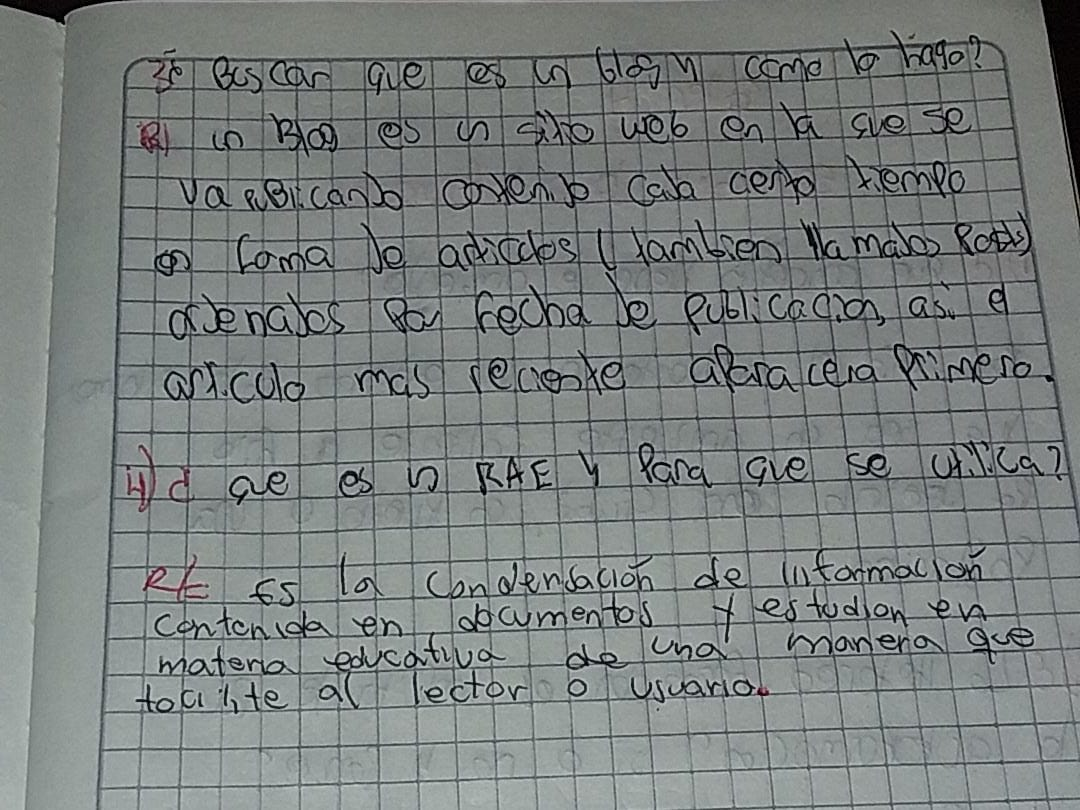 3º Buscar que es un blog y como lo hago?
R/ un Blog es un sitio web en la que se
va publicando contenido cada cierto tiempo
en forma de articulos (tambien llamados Posts)
ordenados por fecha de publicacion, asi el
articulo mas reciente aparacera primero.
4) ¿ que es un RAE y Para que se utilica?
R/= Es la condensación de información
contenida en documentos y estudion en
materia educativa de una manera que
facilite al lector o usuario.